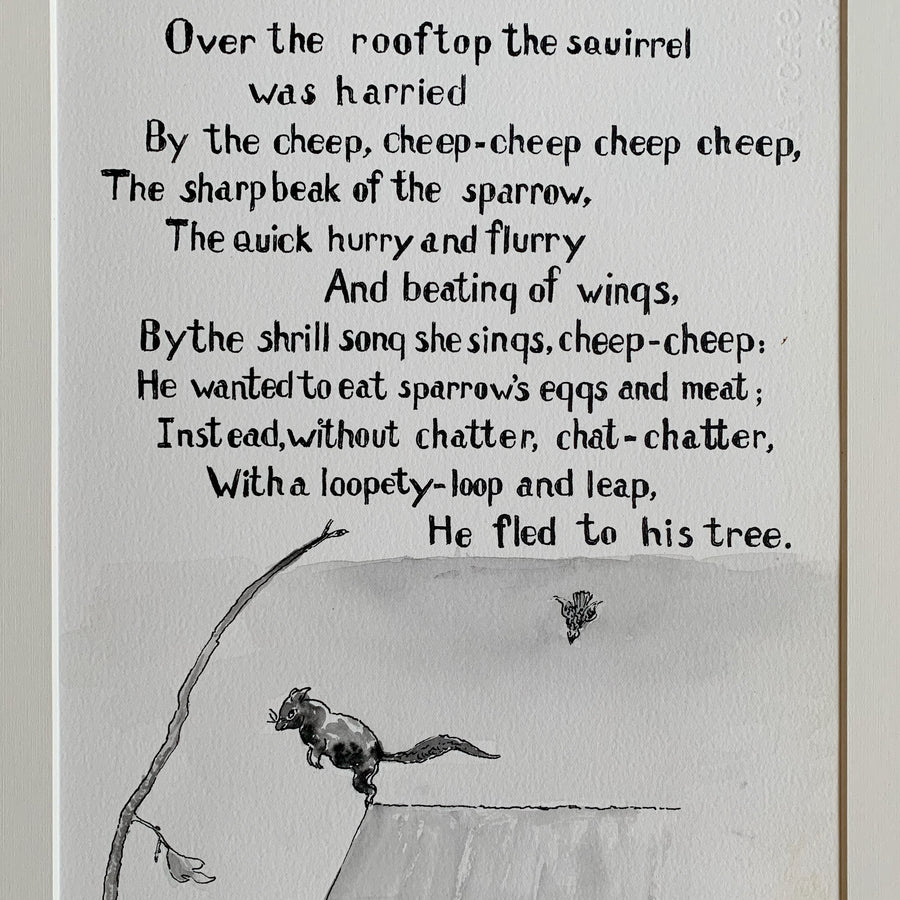 Over the rooftop the squirrel
was harried
By the cheep, cheep-cheep cheep cheep,
The sharp beak of the sparrow,
The quick hurry and flurry
And beating of wings,
By the shrill song she sings, cheep-cheep:
He wanted to eat sparrow's eggs and meat;
Instead, without chatter, chat-chatter,
With a loopety-loop and leap,
He fled to his tree.